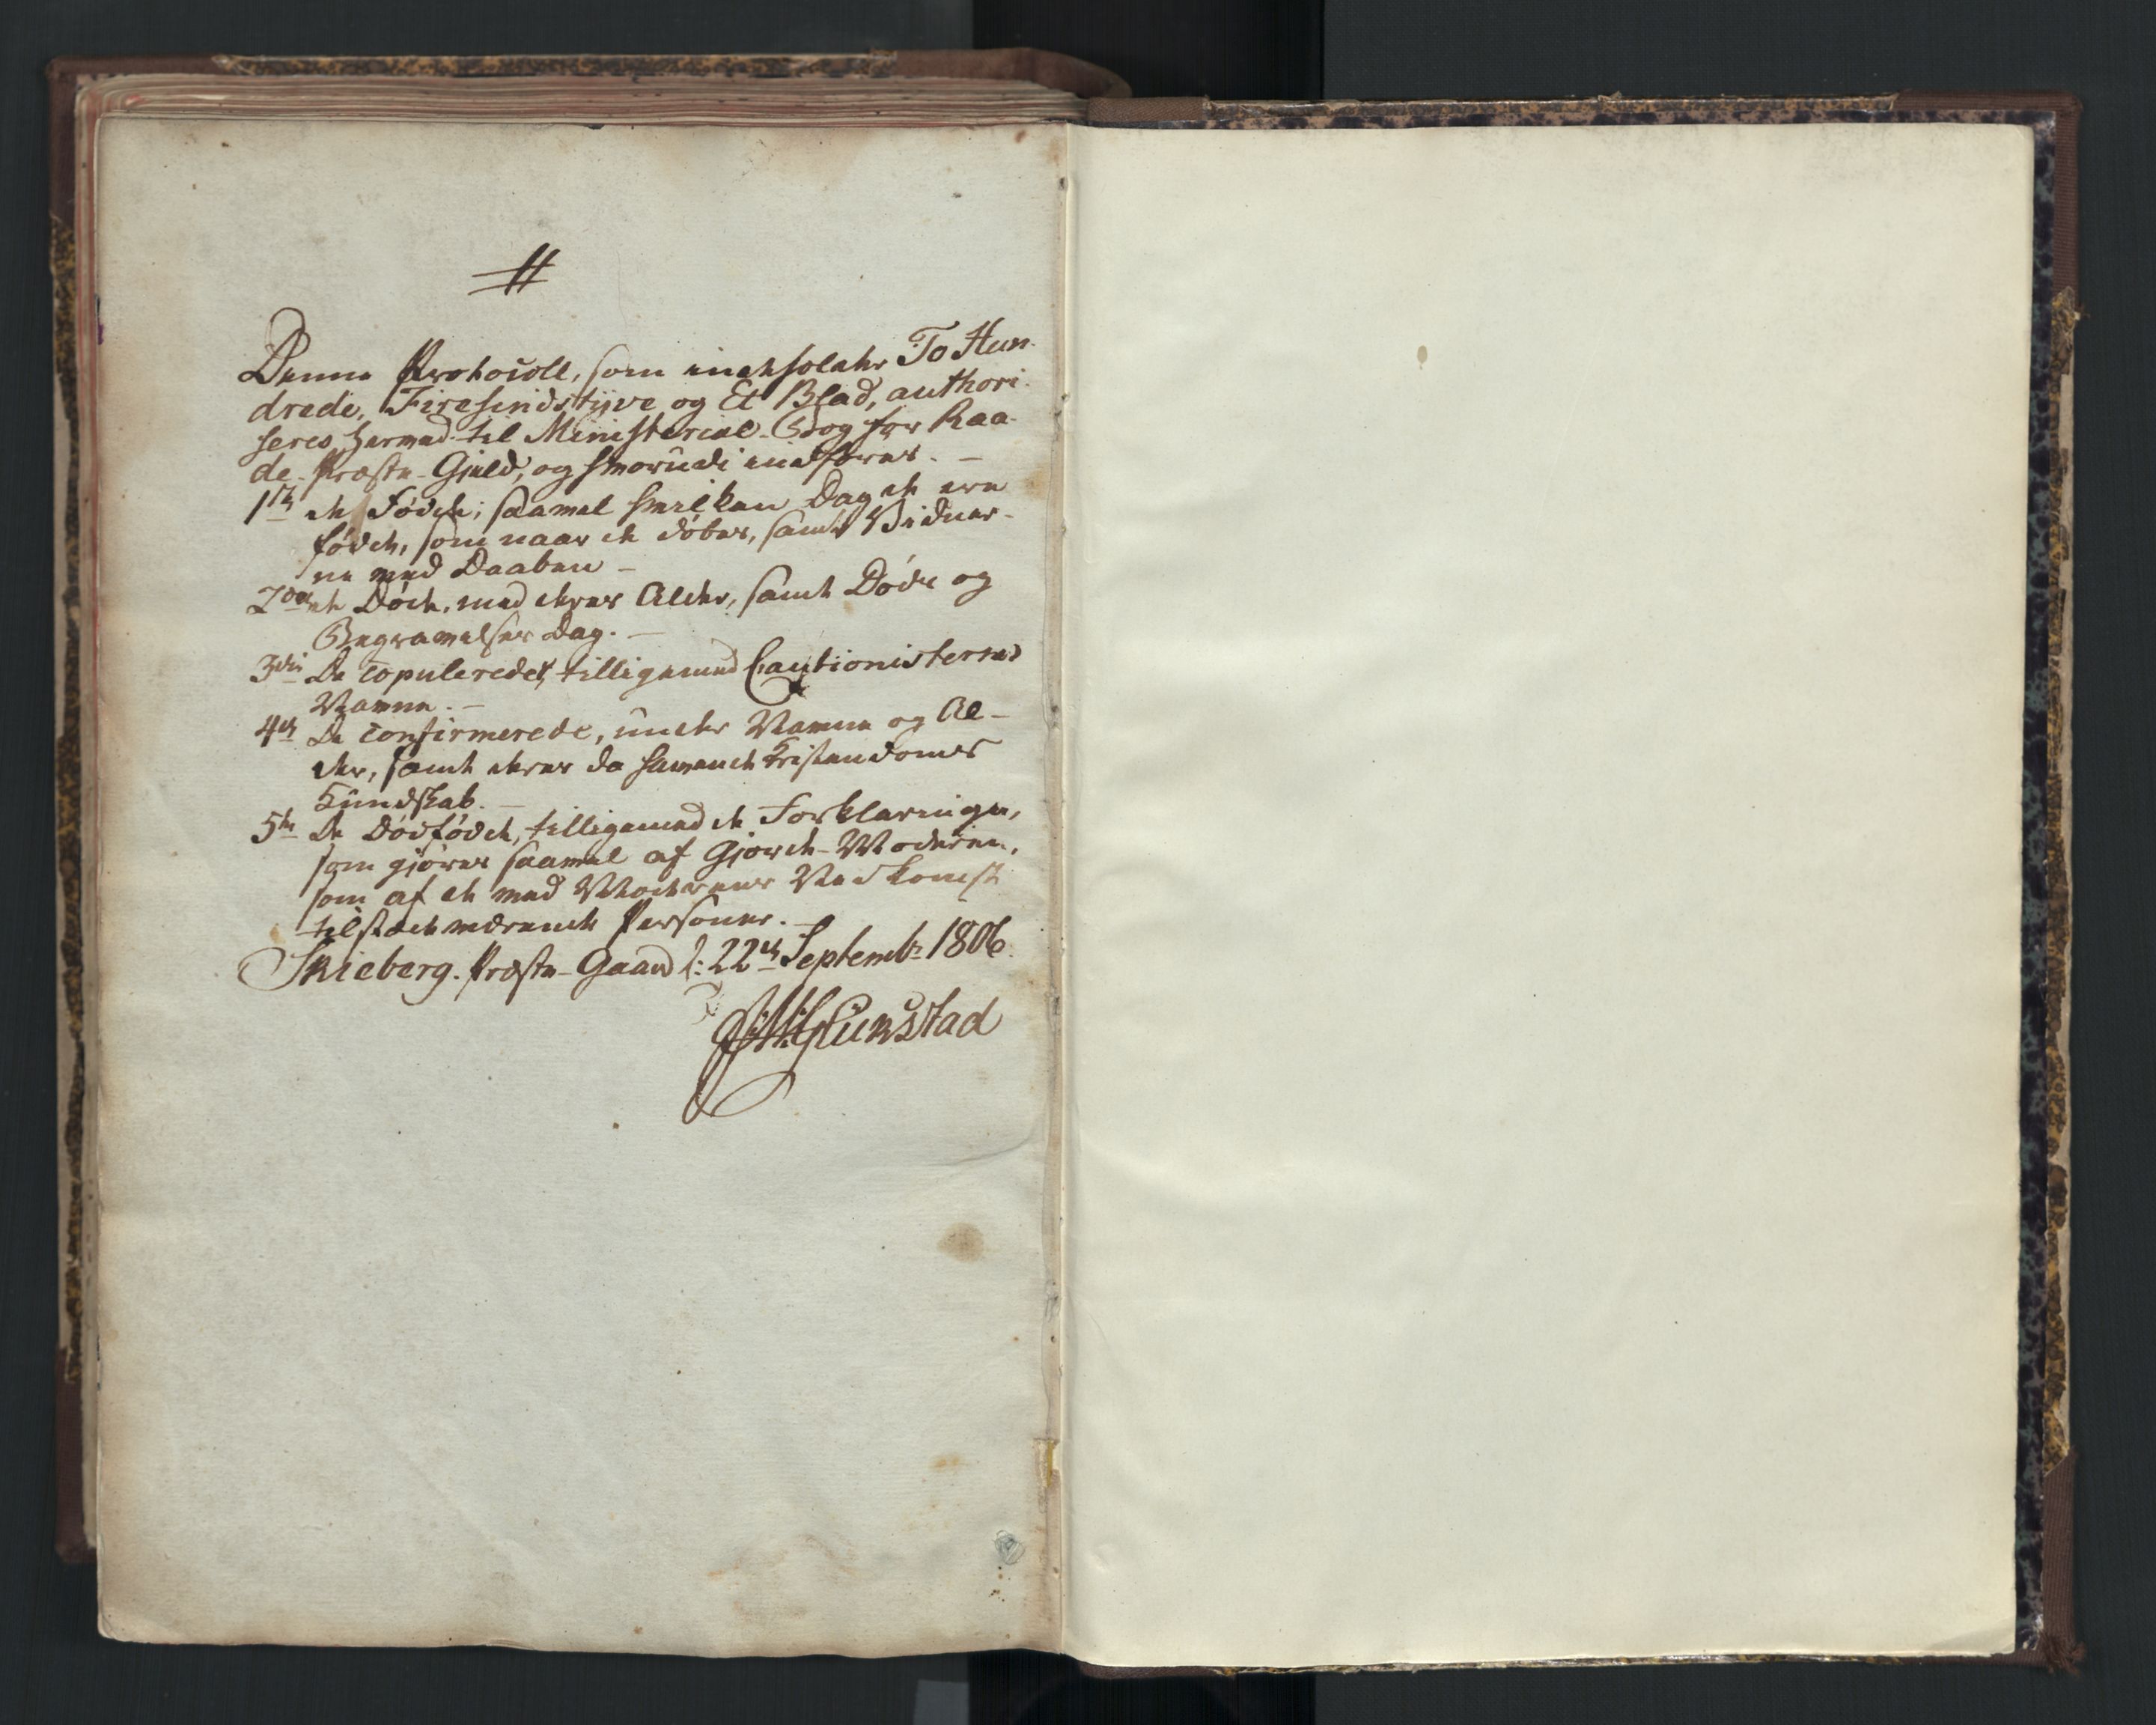 #
Denne Protocoll, som indeholder To Hun-
drede, Firesindstÿve og Et Blad, authori-
seres hermed til Ministerial-Bog for Raa-
de-Præste-Gjeld, og hvorudi indføres. —
1ste de Fødde; saavel hvilken Dag de ere
fødde, som naar de döbes, samt Vidner-
ne ved Daaben —
2den de Døde, med deres Alder, samt Døds og
Begravelses Dag. —
3die De copulerede, tilligemed Cautionisternes
Navne. —
4de De confirmerede, under Navne og Al-
der, samt deres da havende Kristendoms
Kundskab. —
5te De dødfødde, tilligemed de Forklaringer,
som gjøres saavel af Gjorde-Moderen,
som af de ved Moderens Nedkomst
tilstædeværende Personer. —
Skieberg. Præste-Gaard d: 22de Septembr 1806.
Grünstad